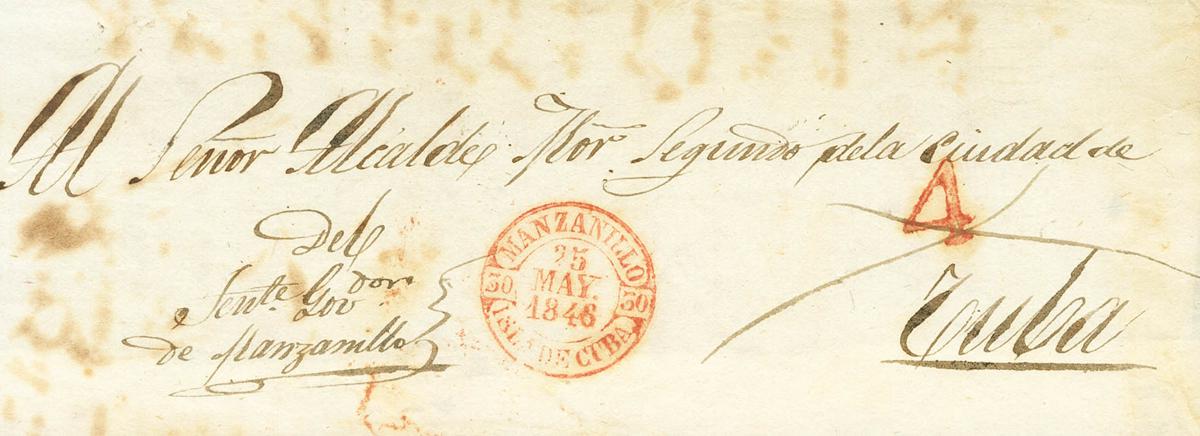 Al Señor Alcalde Mor Segundo de la Ciudad de
Cuba
Del
Tente. Govdor
de Manzanillo
MANZANILLO
25
MAY.
1846
30 30
ISLA DE CUBA
A